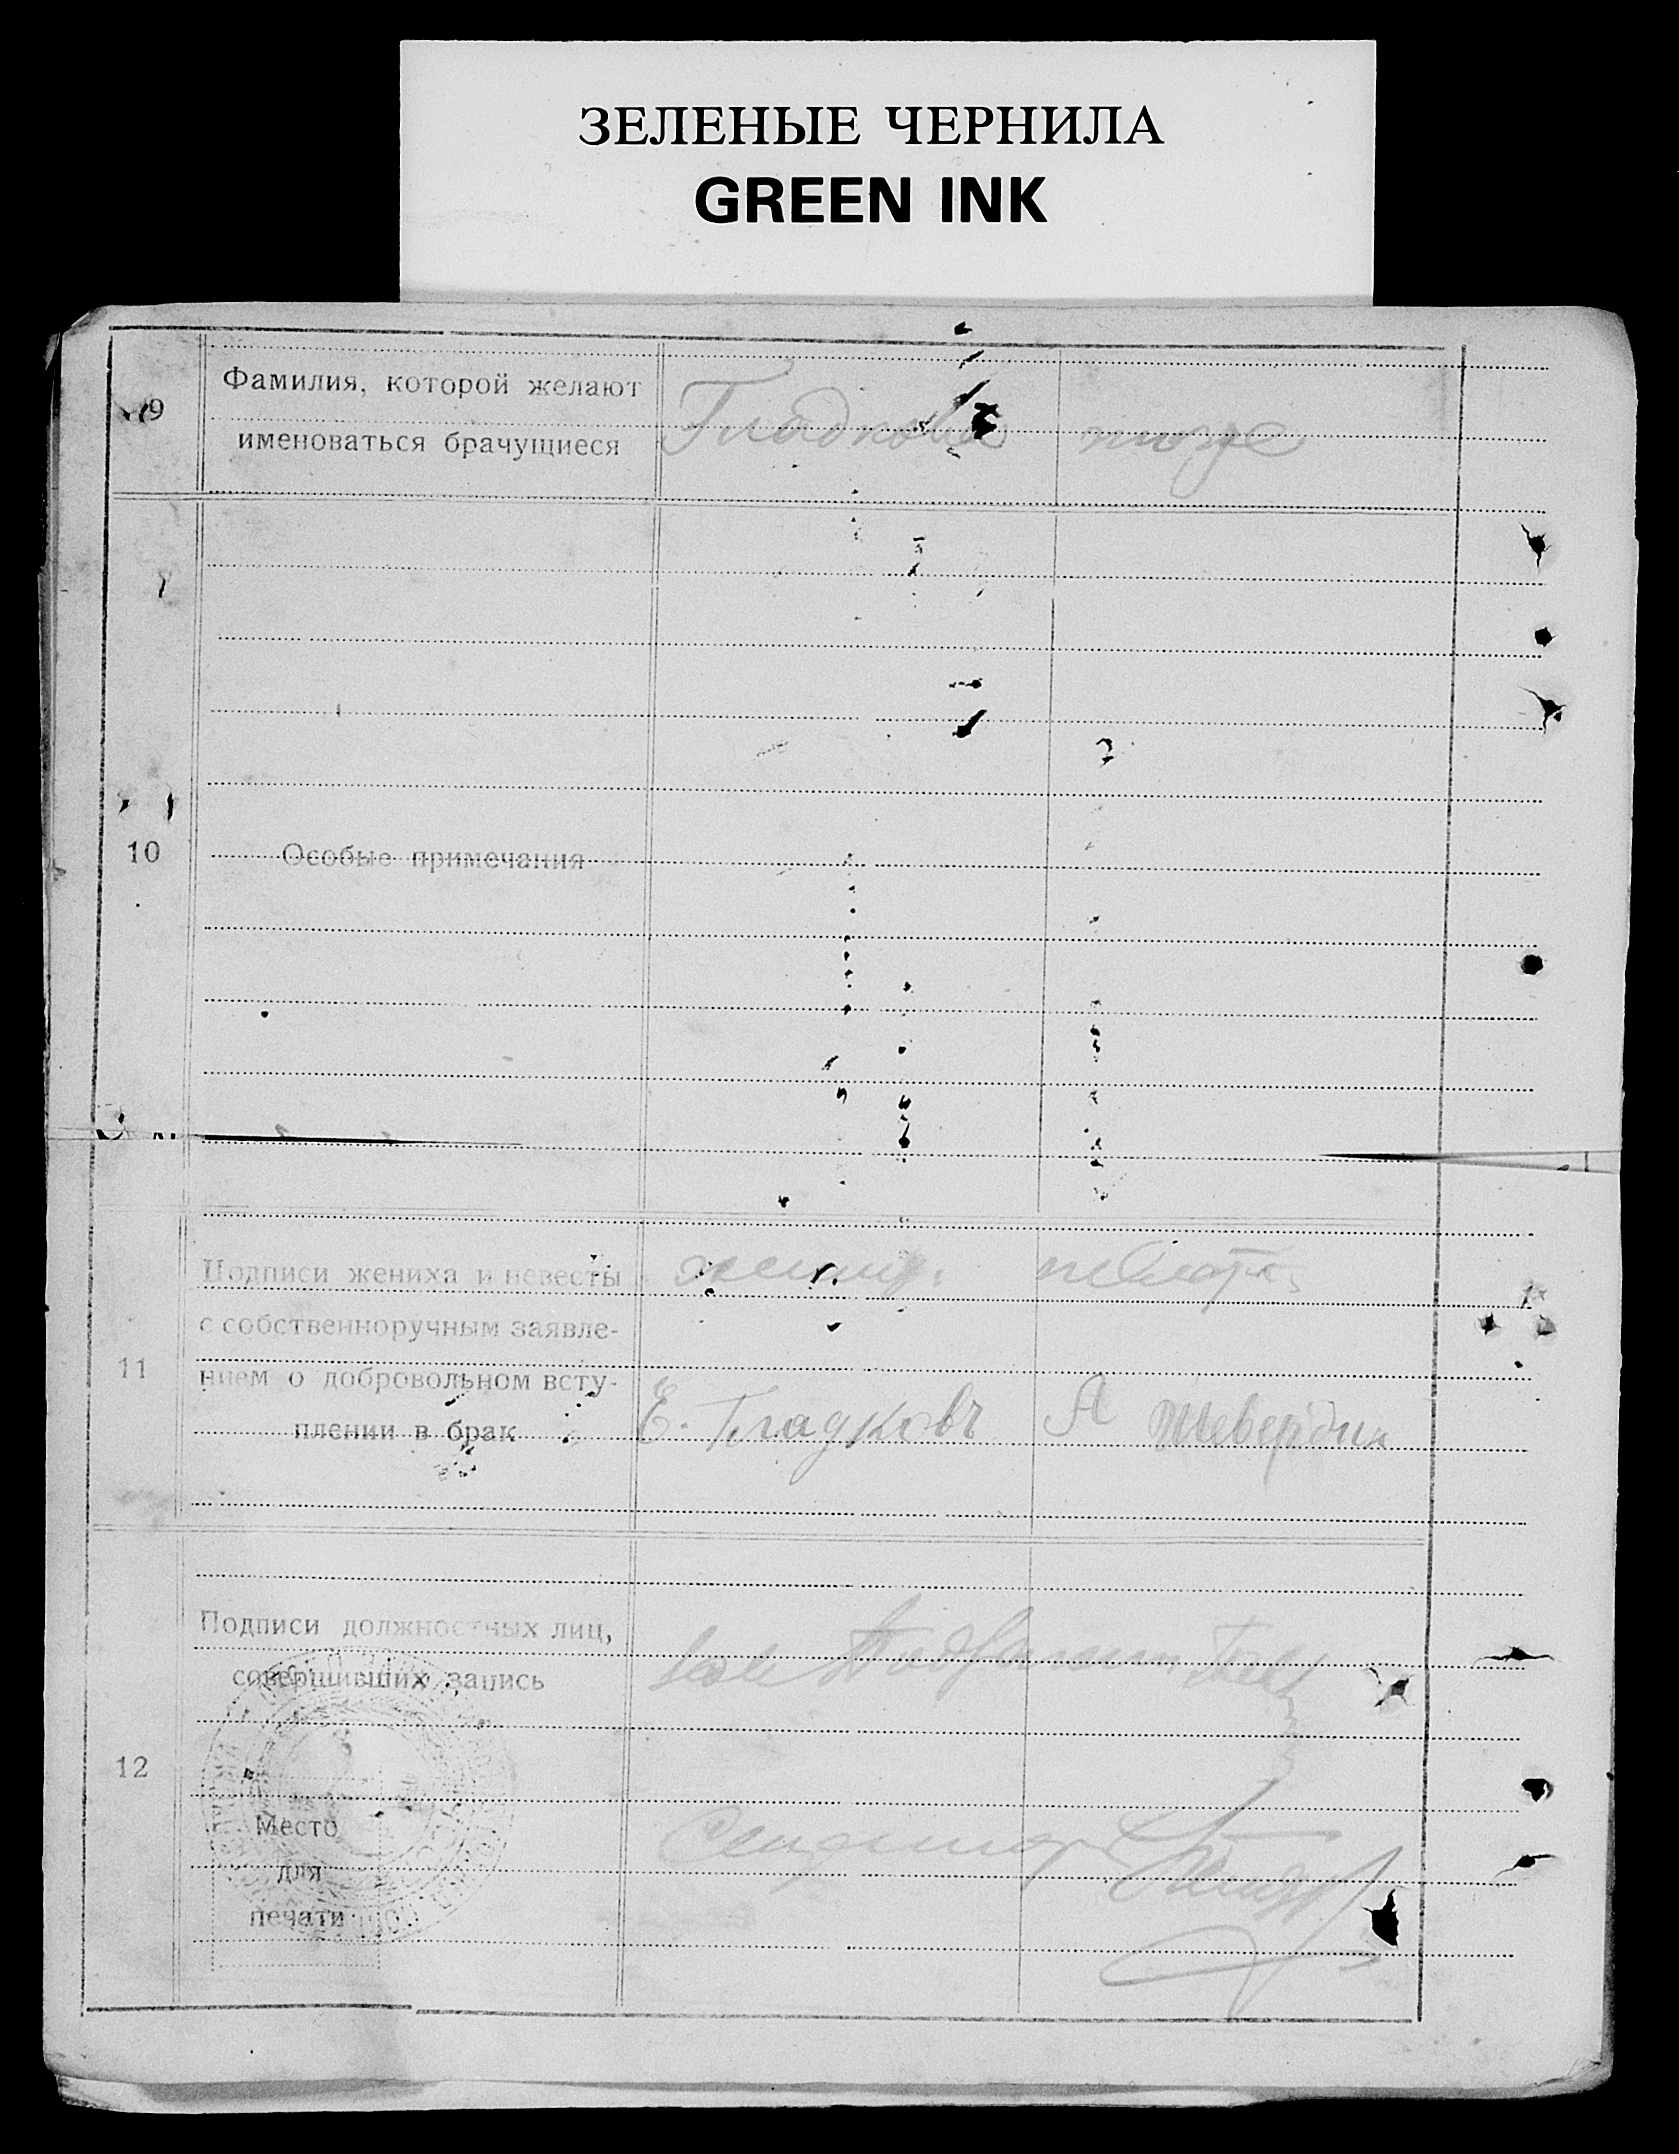 ЗЕЛЕНЫЕ ЧЕРНИЛА
GREEN INK
9
Фамилия, которой желают
именоваться брачущиеся
Гладковы
10
Особые примечания
11
Подписи жениха и невесты
с собственноручным заявле-
нием о добровольном всту-
плении в брак
жених невеста
Е. Гладковъ А
12
Подписи должностных лиц,
совершивших запись
Место
для
печати